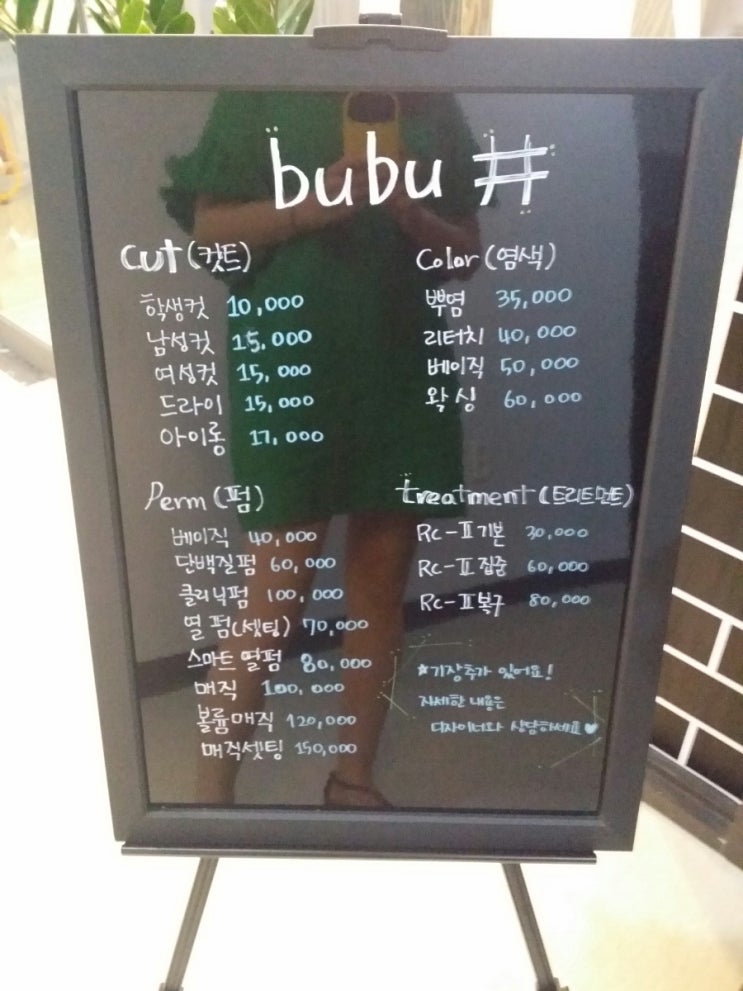 bubu #
cut (컷트)
학생컷 10,000
남성컷 15,000
여성컷 15,000
드라이 15,000
아이롱 17,000
Color (염색)
뿌염 35,000
리터치 40,000
베이직 50,000
왁싱 60,000
Perm (펌)
베이직 40,000
단백질펌 60,000
클리닉펌 100,000
열펌(셋팅) 70,000
스마트 열펌 80,000
매직 100,000
볼륨매직 120,000
매직셋팅 150,000
treatment (트리트먼트)
Rc-Ⅱ 기본 30,000
Rc-Ⅱ 집중 60,000
Rc-Ⅱ 복구 80,000
★기장추가 있어요!
자세한 내용은
디자이너와 상담하세요♥